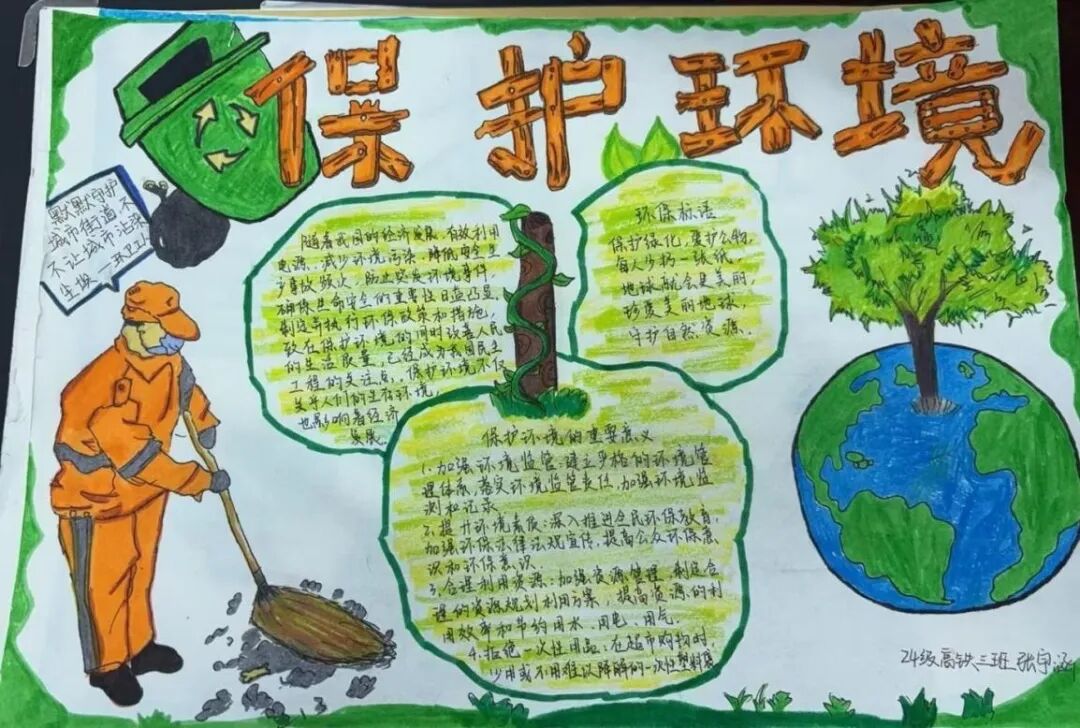 保护环境
默默守护
城市街道不
不让城市沾染
尘埃 — 环卫工人
随着我国的经济发展，有效利用
电源、减少环境污染、降低安全生
产事故频次，防止突发环境事件，
确保生命安全的重要性日益凸显，
制定并执行环保政策和措施，
致在保护环境的同时改善人民
的生活质量，已经成为我国民生
工程的关注点。保护环境不仅
关乎人们的生存环境，
也影响着经济
发展
环保标语
保护绿化，爱护公物，
每人少扔一张纸，
地球就会更美丽，
珍爱美丽地球，
守护自然资源。
保护环境的重要意义
1.加强环境监管：建立严格的环境管
理体系，落实环境监管责任，加强环境监
测和记录
2.提升环境素质：深入推进全民环保教育，
加强环保法律法规宣传，提高公众环保意
识和环保意识、
3.合理利用资源：加强资源管理，制定合
理的资源规划利用方案，提高资源的利
用效率和节约用水、用电、用气
4.拒绝一次性用品：在超市购物时，
少用或不用难以降解的一次性塑料袋
24级高铁三班 张宇涵